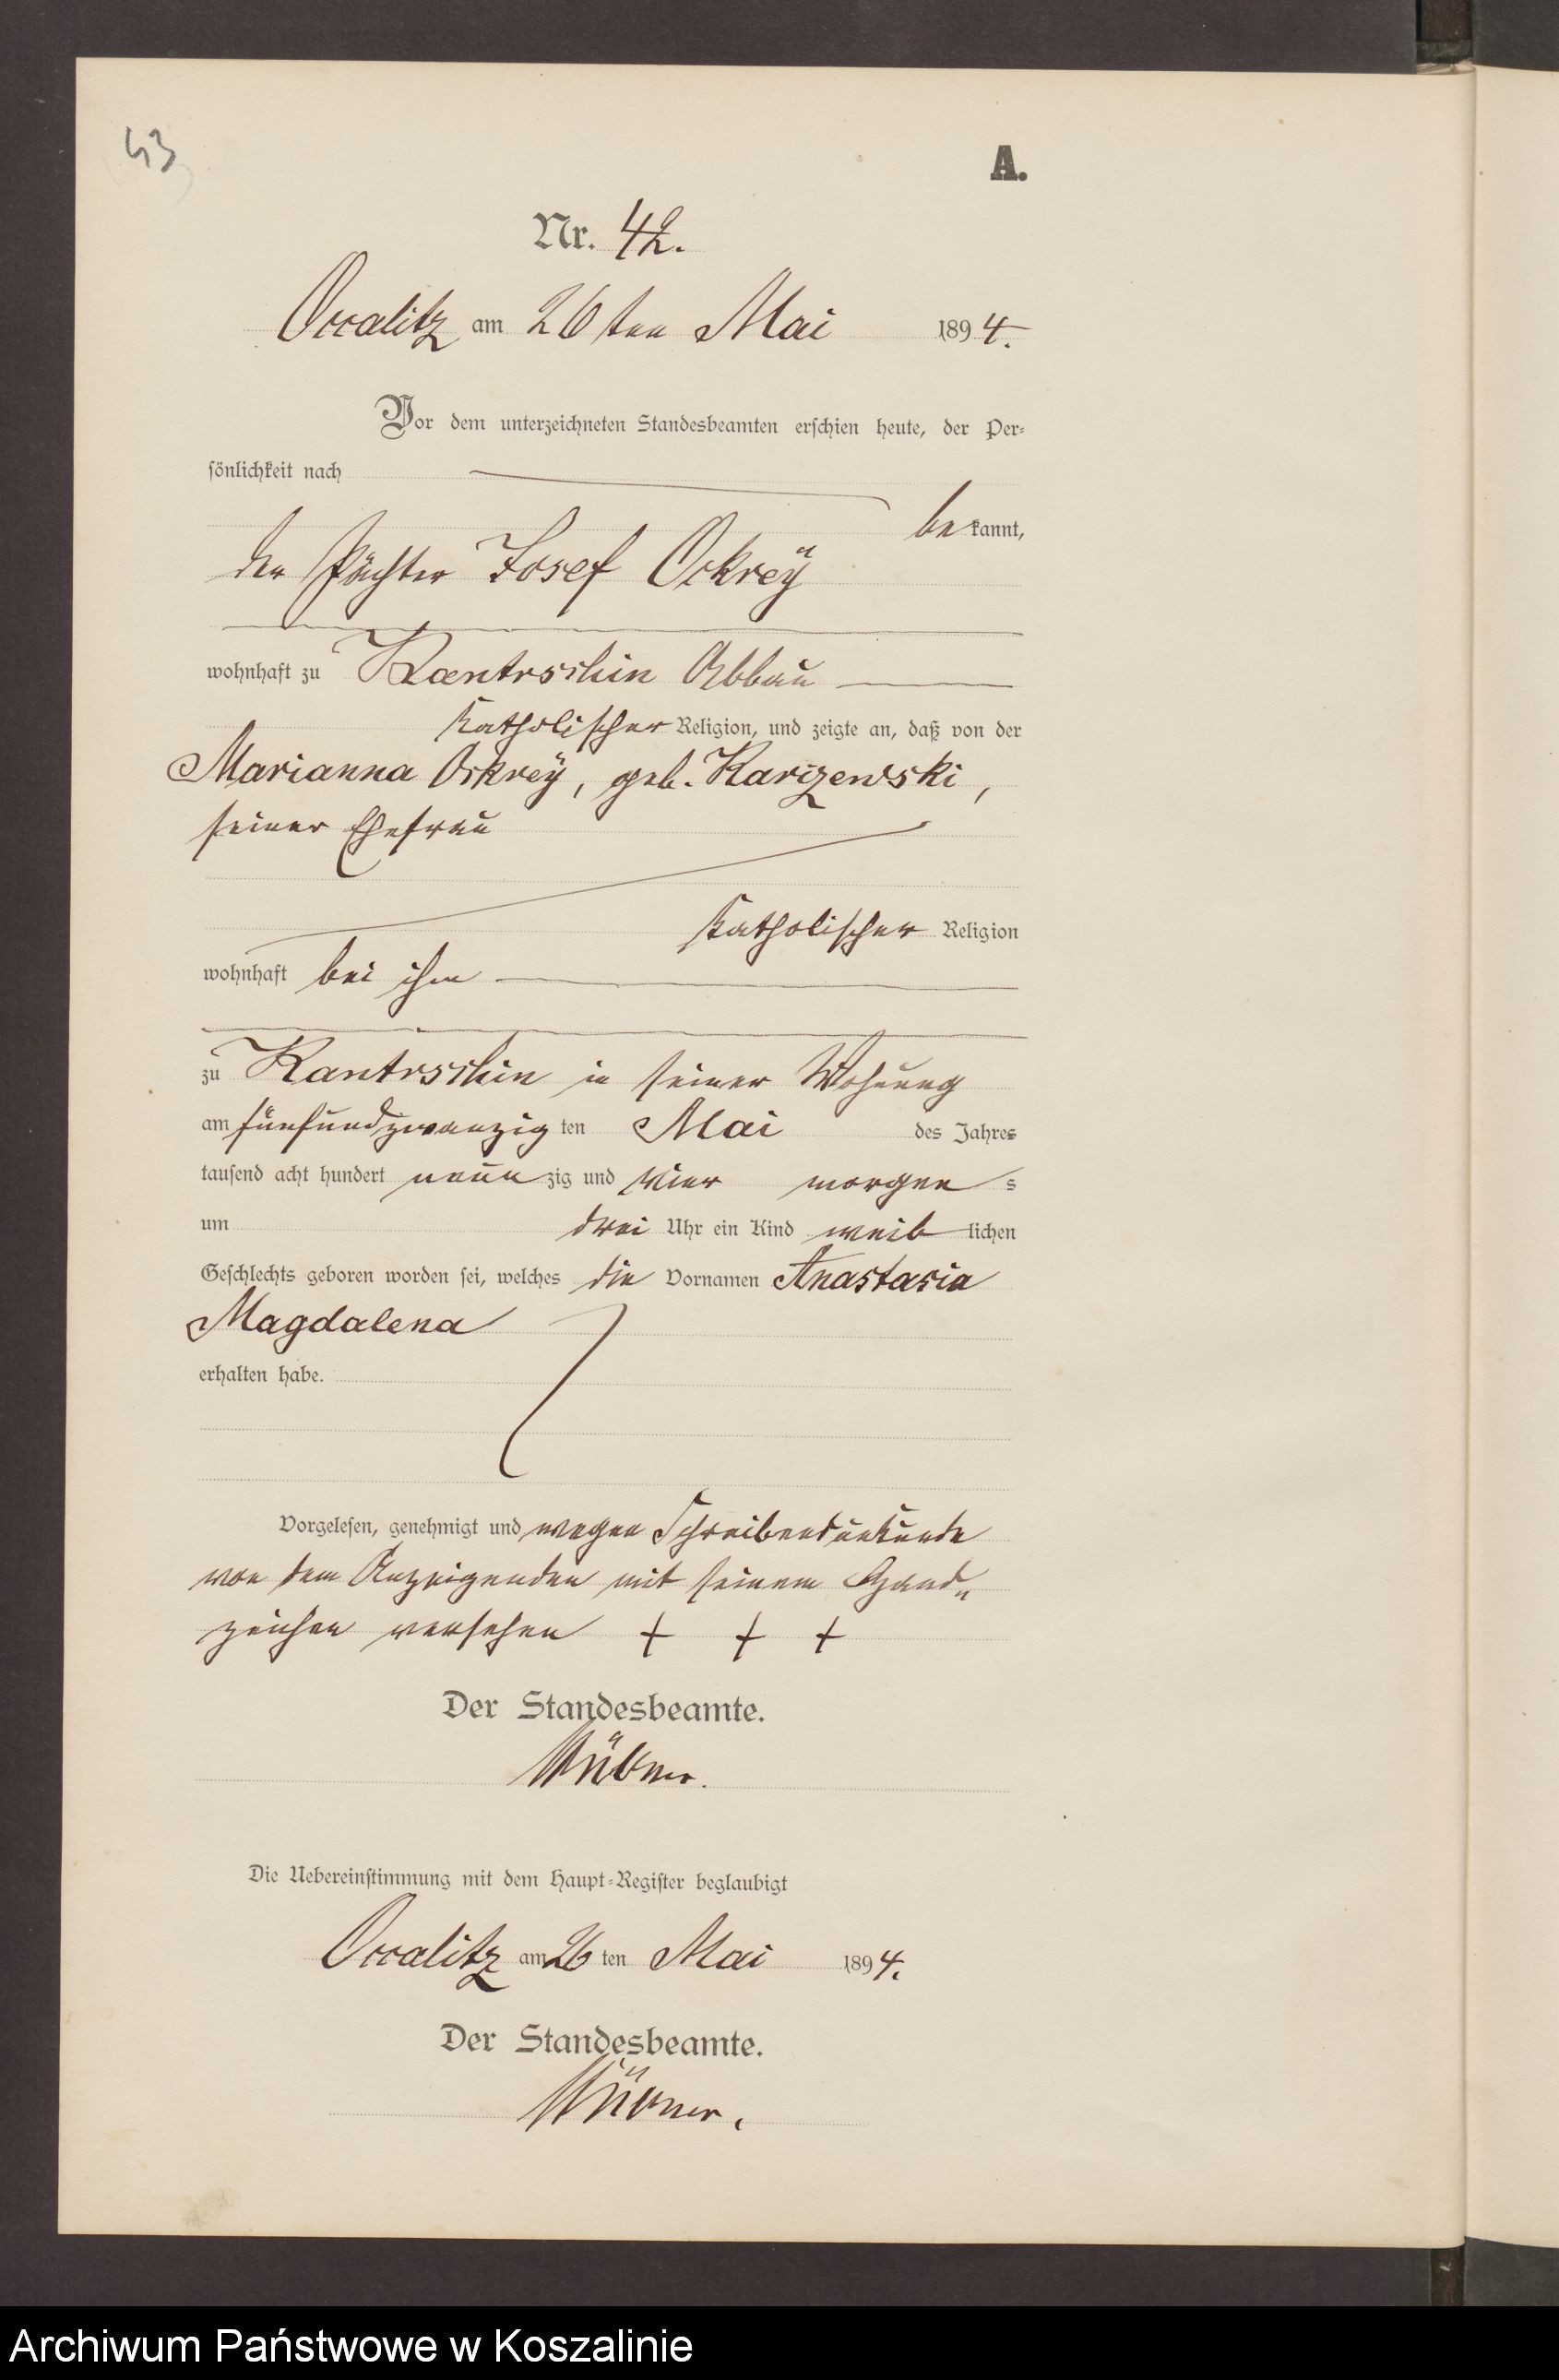 43
A.
Nr. 42.
Occalitz am 26ten Mai 1894.
Vor dem unterzeichneten Standesbeamten erschien heute, der Per-
sönlichkeit nach
bekannt,
der Pächter Josef Ockreÿ
wohnhaft zu Kantrschin Abbau
katholischer Religion, und zeigte an, daß von der
Marianna Ockreÿ, geb. Karizewski,
seiner Ehefrau
katholischer Religion
wohnhaft bei ihm
zu Kantrschin in seiner Wohnung
am fünfundzwanzigten Mai des Jahres
tausend acht hundert neunzig und vier morgens
um drei Uhr ein Kind weiblichen
Geschlechts geboren worden sei, welches die Vornamen Anastasia
Magdalena
erhalten habe.
Vorgelesen, genehmigt und wegen Schreibensunkunde
von dem Anzeigenden mit seinem Hand-
zeichen versehen + + +
Der Standesbeamte.
Die Uebereinstimmung mit dem Haupt-Register beglaubigt
Occalitz am 26ten Mai 1894.
Der Standesbeamte.
Archiwum Państwowe w Koszalinie